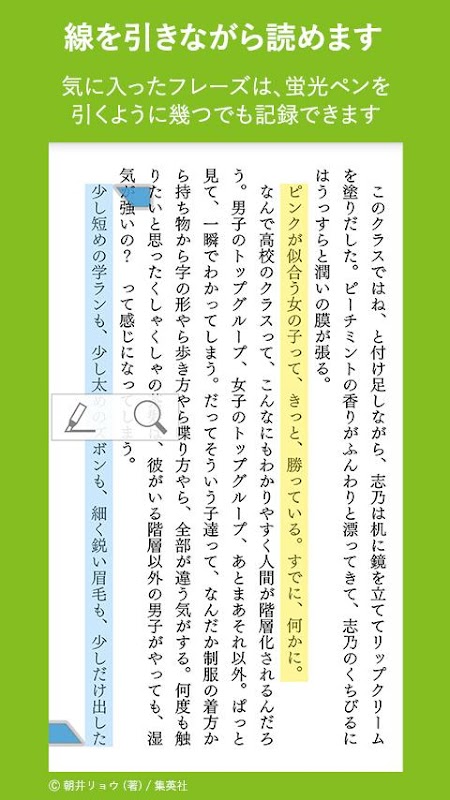 線を引きながら読めます
気に入ったフレーズは、蛍光ペンを
引くように幾つでも記録できます
このクラスではね、と付け足しながら、志乃は机に鏡を立ててリップクリーム
を塗りだした。ピーチミントの香りがふんわりと漂ってきて、志乃のくちびるに
はうっすらと潤いの膜が張る。
ピンクが似合う女の子って、きっと、勝っている。すでに、何かに。
なんで高校のクラスって、こんなにもわかりやすく人間が階層化されるんだろ
う。男子のトップグループ、女子のトップグループ、あとまあそれ以外。ぱっと
見て、一瞬でわかってしまう。だってそういう子達って、なんだか制服の着方か
ら持ち物から字の形やら歩き方やら喋り方やら、全部が違う気がする。何度も触
りたいと思ったくしゃくしゃの、彼がいる階層以外の男子がやっても、湿
気が強いの? って感じになってしまう。
少し短めの学ランも、少し太めのズボンも、細く鋭い眉毛も、少しだけ出した
© 朝井リョウ (著) / 集英社